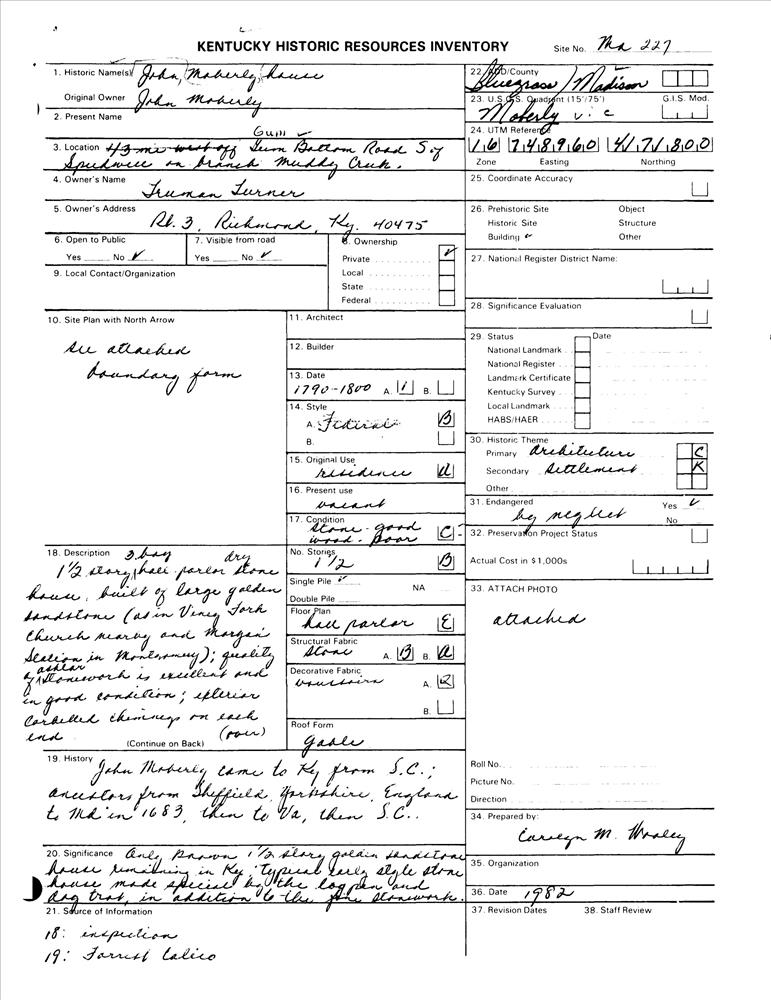 KENTUCKY HISTORIC RESOURCES INVENTORY
Site No. Ma 227
1. Historic Name(s) John Moberly house
Original Owner John Moberly
2. Present Name
3. Location 4.3 mi west off Gum Bottom Road S of
Speedwell on branch Muddy Creek.
4. Owner's Name
Truman Turner
5. Owner's Address
Rt. 3, Richmond, Ky. 40475
6. Open to Public
Yes No ✓
7. Visible from road
Yes No ✓
8. Ownership
Private ✓
Local
State
Federal
9. Local Contact/Organization
10. Site Plan with North Arrow
see attached
boundary form
11. Architect
12. Builder
13. Date
1790-1800 A. 1 B.
14. Style
A. Federal B
B.
15. Original Use
residence
16. Present use
vacant
17. Condition
stone - good
wood - poor C
18. Description 3 bay dry
1½ story, hall parlor stone
house, built of large golden
sandstone (as in Viney Fork
Church nearby and Morgan
Station in Montgomery); quality
of ashlar stonework is excellent and
in good condition; exterior
corbelled chimneys on each
end (over)
(Continue on Back)
No. Stories
1 ½ B
Single Pile ✓
NA
Double Pile
Floor Plan
hall parlor E
Structural Fabric
stone A. B B. a
Decorative Fabric
voussoirs A. R
B.
Roof Form
gable
19. History
John Moberly came to Ky from S.C.;
ancestors from Sheffield, Yorkshire, England
to Md in 1683, then to Va, then S.C..
20. Significance Only known 1½ story golden sandstone
house remaining in Ky; typical early style stone
house made special by the log pen and
dog trot, in addition to the fine stonework.
21. Source of Information
18: inspection
19: Forrest Calico
22. ADD/County
Bluegrass / Madison
23. U.S.G.S. Quadrant (15'/75') G.I.S. Mod.
Moberly
24. UTM Reference
16 748960 4171800
Zone Easting Northing
25. Coordinate Accuracy
26. Prehistoric Site Object
Historic Site Structure
Building ✓ Other
27. National Register District Name:
28. Significance Evaluation
29. Status Date
National Landmark
National Register
Landmark Certificate
Kentucky Survey
Local Landmark
HABS/HAER
30. Historic Theme
Primary architecture C
Secondary settlement K
Other
31. Endangered Yes ✓
by neglect No
32. Preservation Project Status
Actual Cost in $1,000s
33. ATTACH PHOTO
attached
Roll No.
Picture No.
Direction
34. Prepared by:
Carolyn M. Wooley
35. Organization
36. Date 1982
37. Revision Dates 38. Staff Review